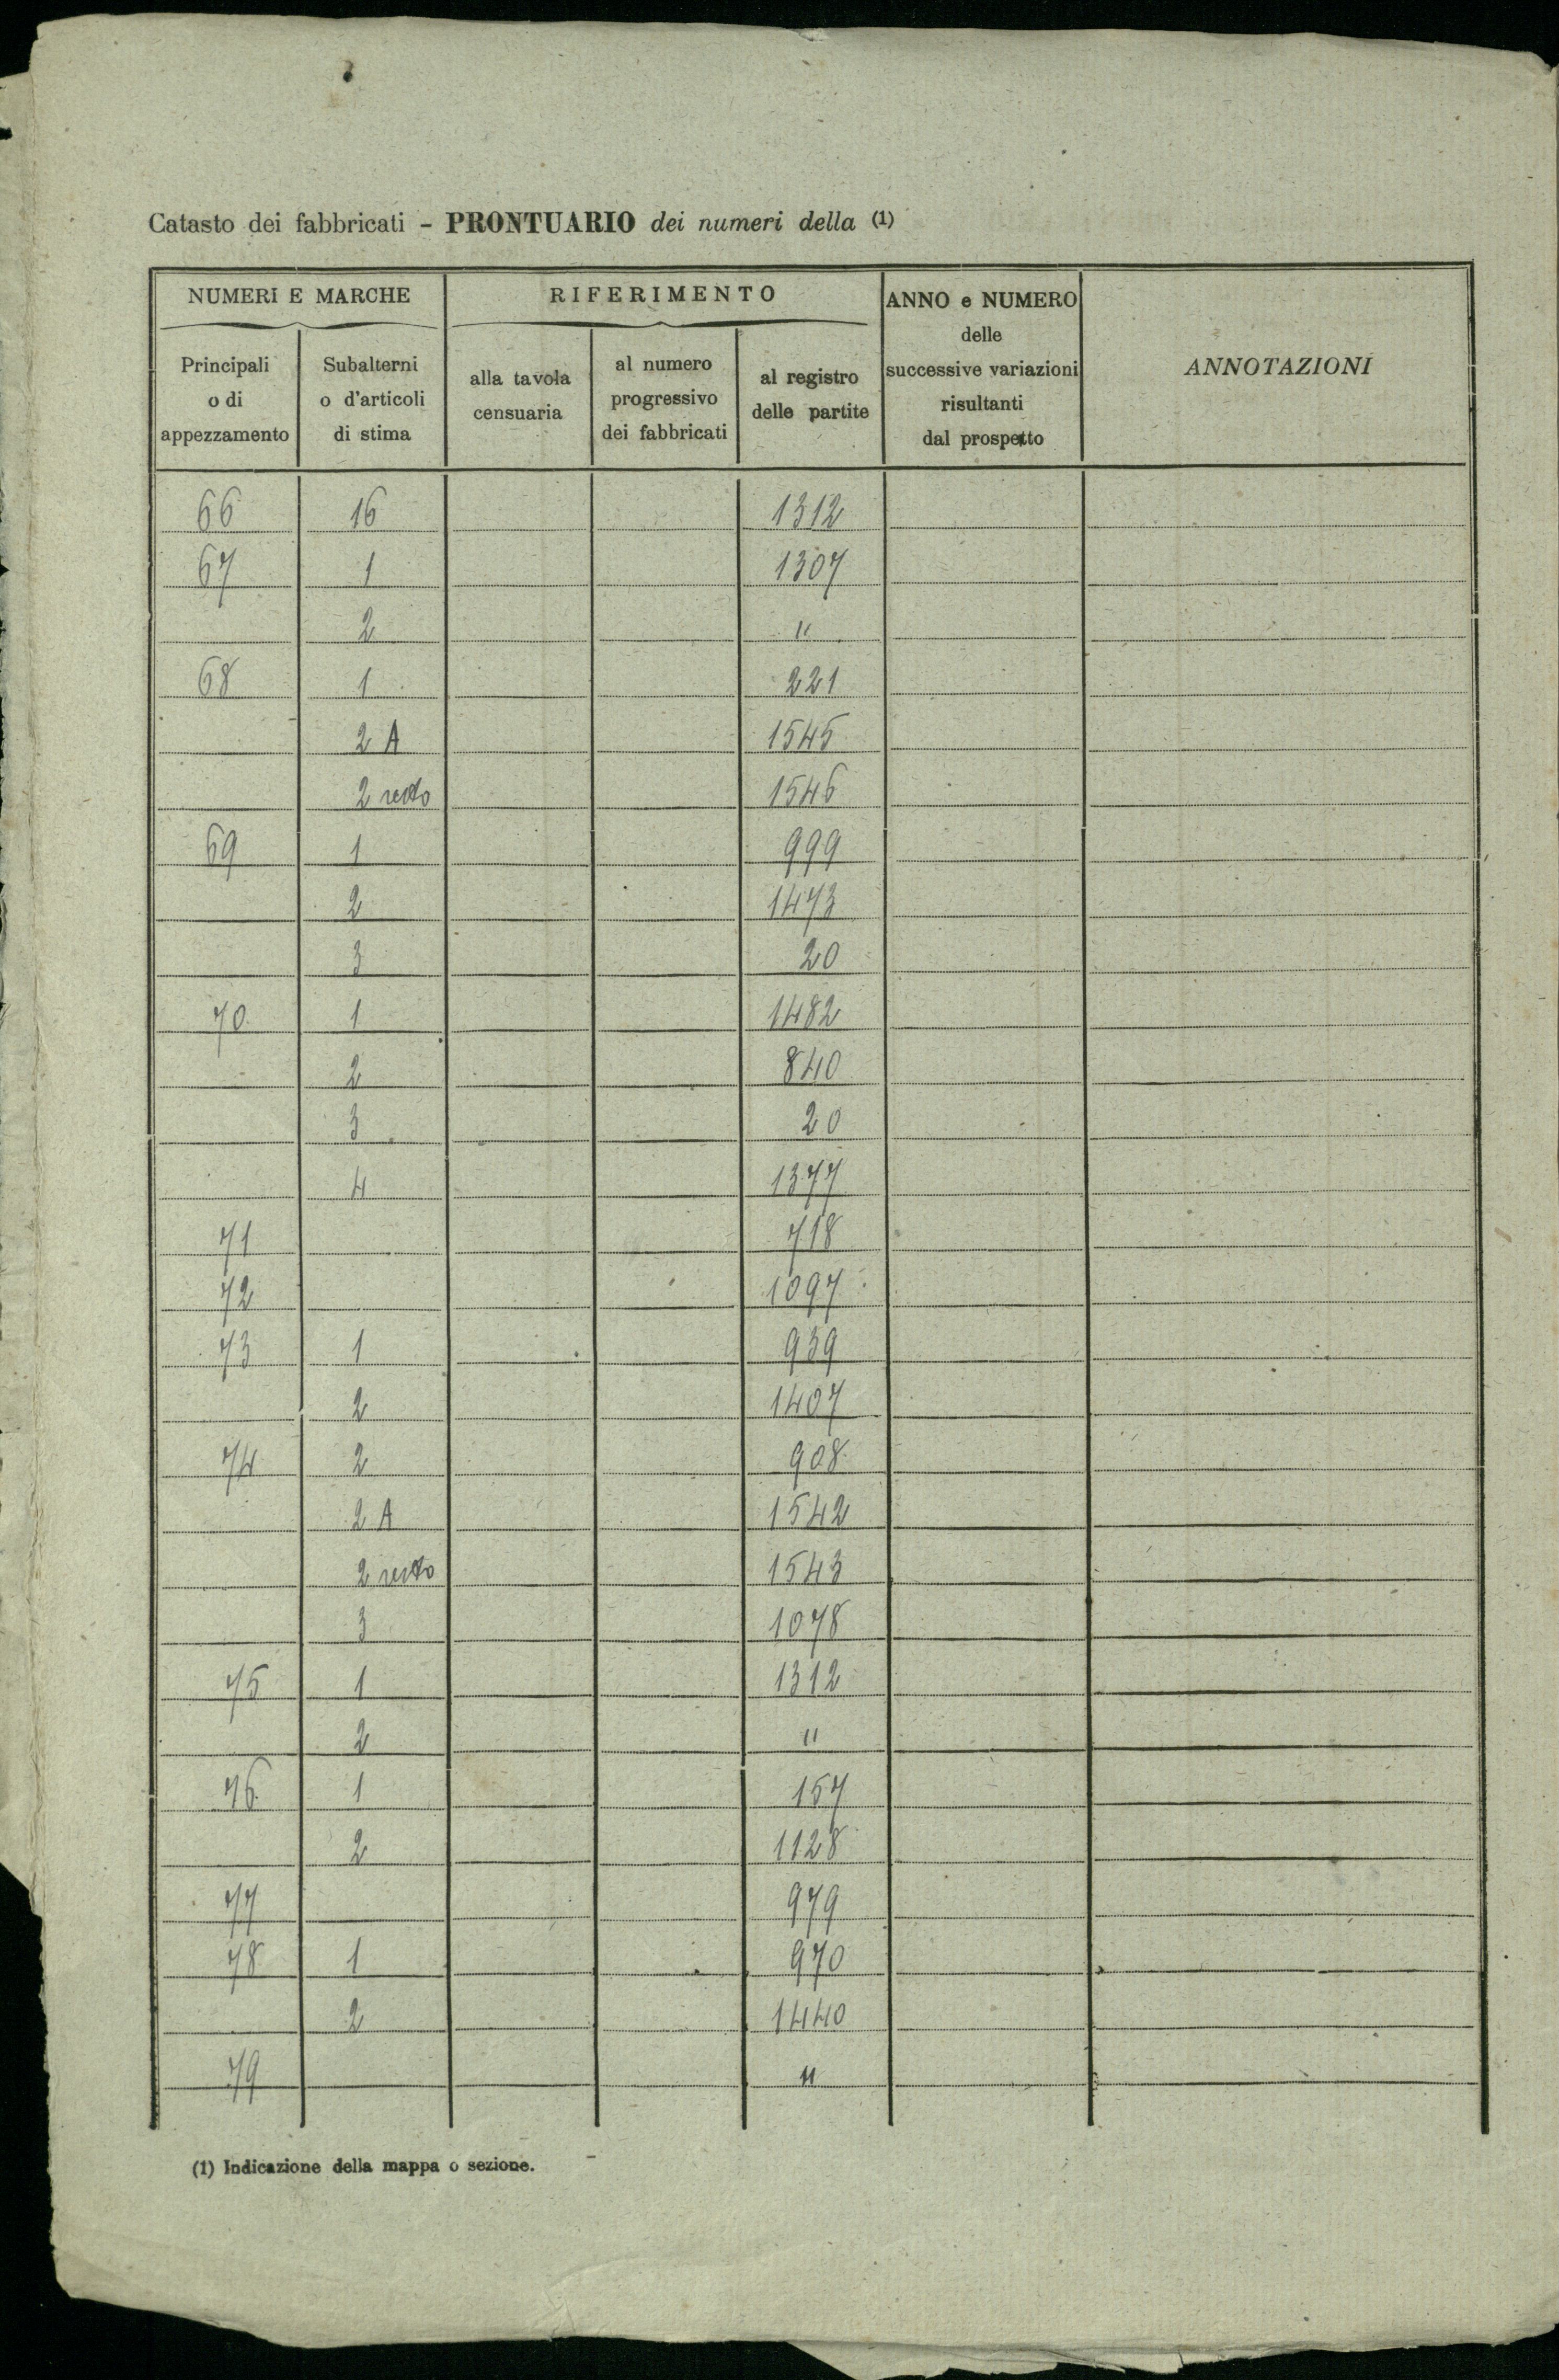 Catasto dei fabbricati - PRONTUARIO dei numeri della (1)
NUMERI E MARCHE
RIFERIMENTO
ANNO e NUMERO
delle
successive variazioni
risultanti
dal prospetto
ANNOTAZIONI
Principali
o di
appezzamento
Subalterni
o d'articoli
di stima
alla tavola
censuaria
al numero
progressivo
dei fabbricati
al registro
delle partite
66 16 1312
67 1 1307
2 "
68 1 221
2 A 1545
2 resto 1546
69 1 999
2 1473
3 20
70 1 1482
2 840
3 20
4 1377
71 718
72 1097
73 1 939
2 1407
74 2 908
2 A 1542
2 resto 1543
3 1078
75 1 1312
2 "
76 1 157
2 1128
77 979
78 1 970
2 1440
79 "
(1) Indicazione della mappa o sezione.